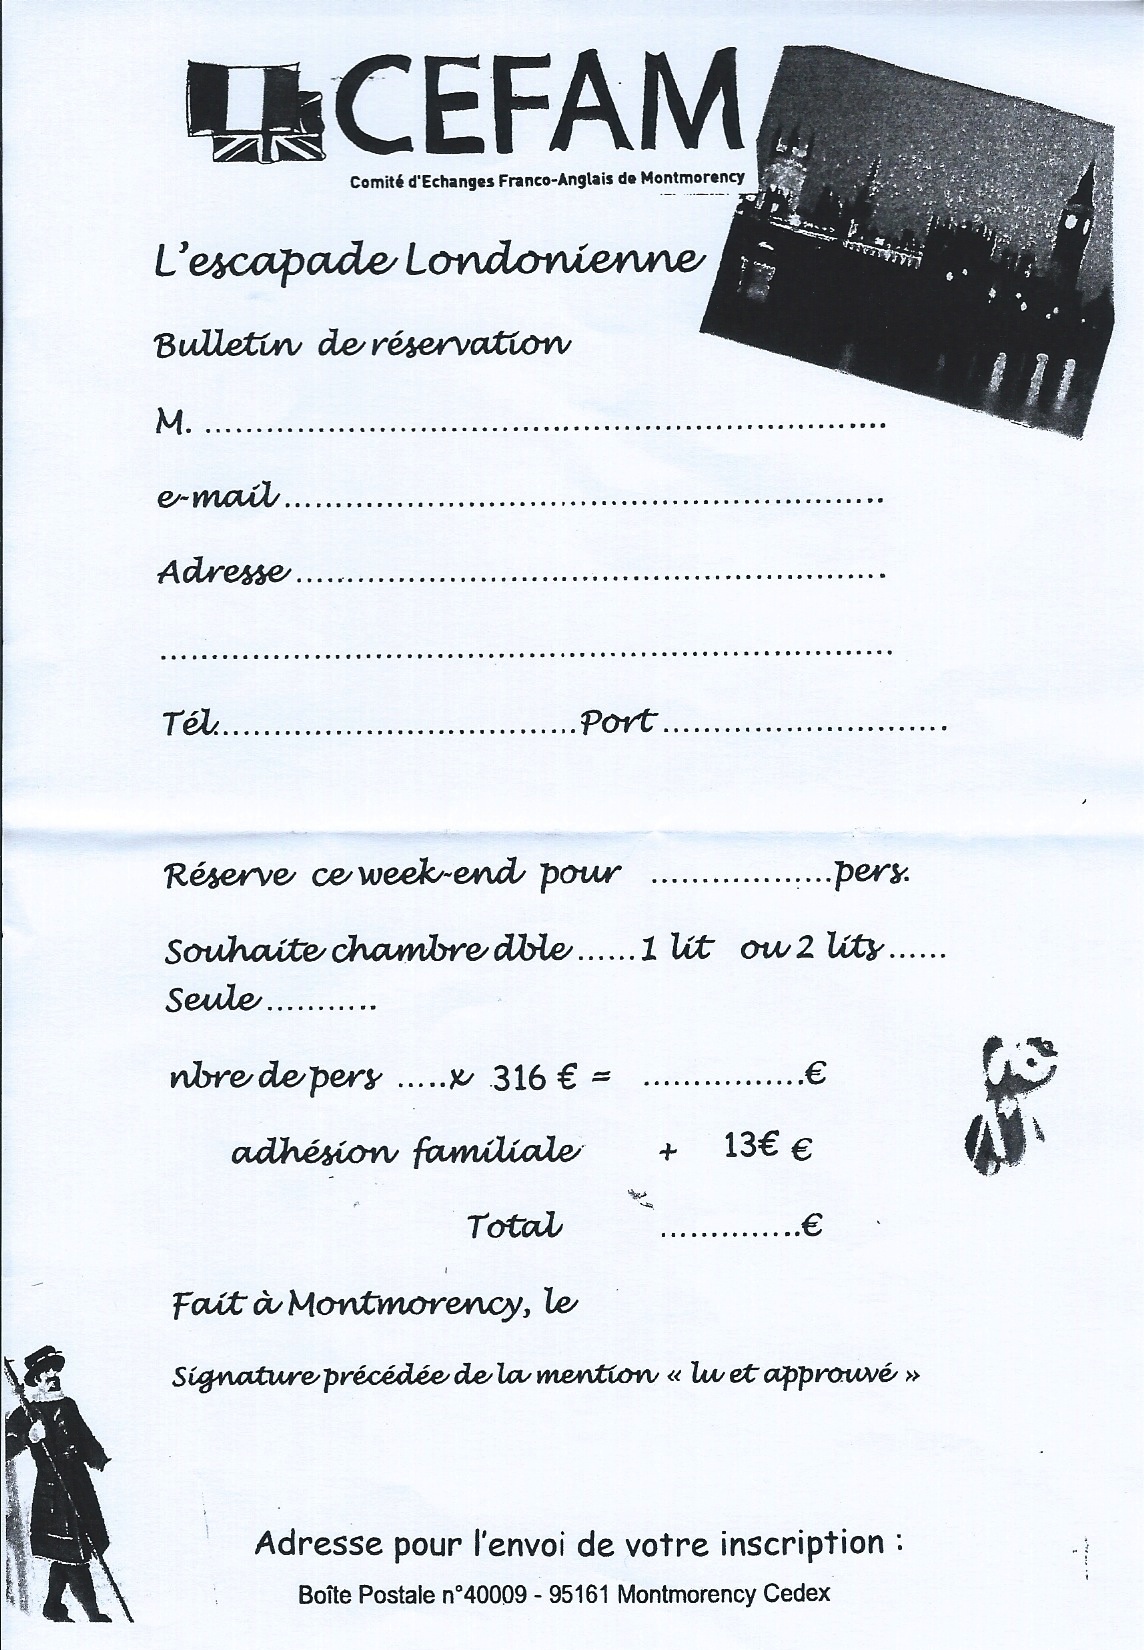 CEFAM
Comité d'Echanges Franco-Anglais de Montmorency
L'escapade Londonienne
Bulletin de réservation
M. ..................................................................
e-mail..........................................................
Adresse.........................................................
......................................................................
Tél...................................Port............................
Réserve ce week-end pour ..................pers.
Souhaite chambre dble......1 lit ou 2 lits......
Seule...........
nbre de pers .....x 316 € = ................€
adhésion familiale + 13€ €
Total ..............€
Fait à Montmorency, le
Signature précédée de la mention « lu et approuvé »
Adresse pour l'envoi de votre inscription :
Boîte Postale n°40009 - 95161 Montmorency Cedex